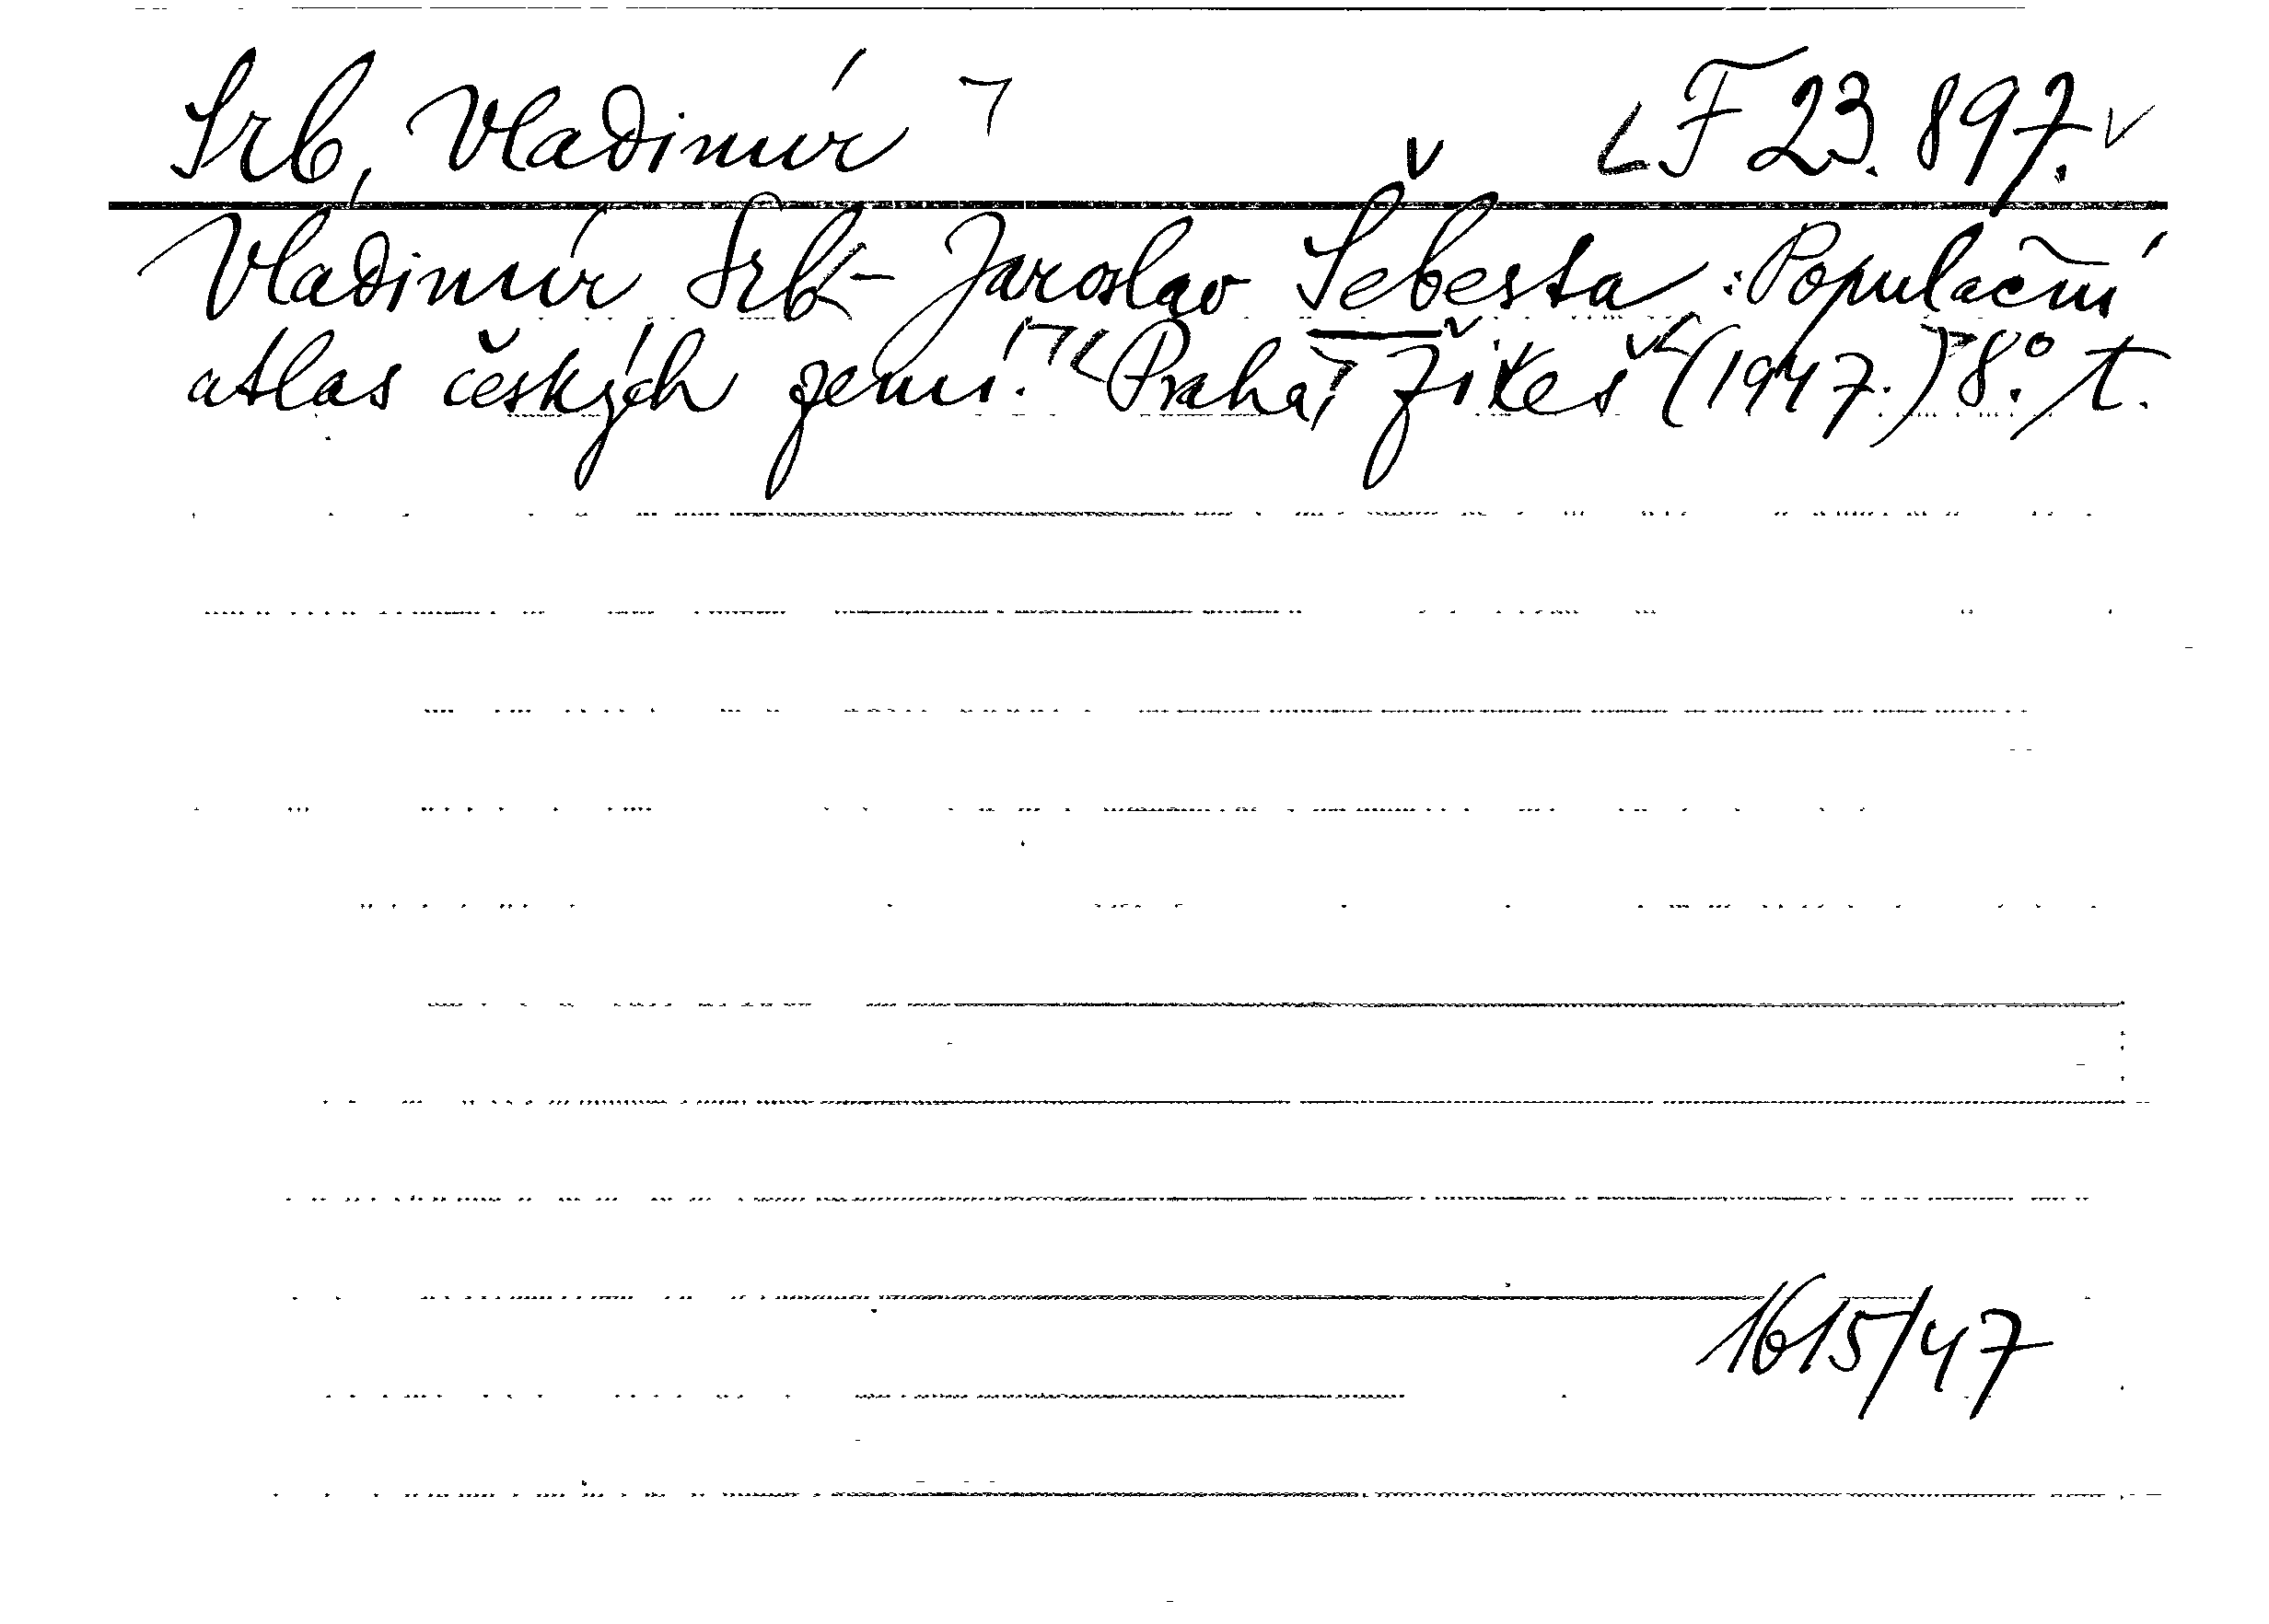 Srb, Vladimír F 23.897.
Vladimír Srb - Jaroslav Šebesta: Populační
atlas českých zemí. Praha, Žikeš (1947.) 8° t.
1615/47